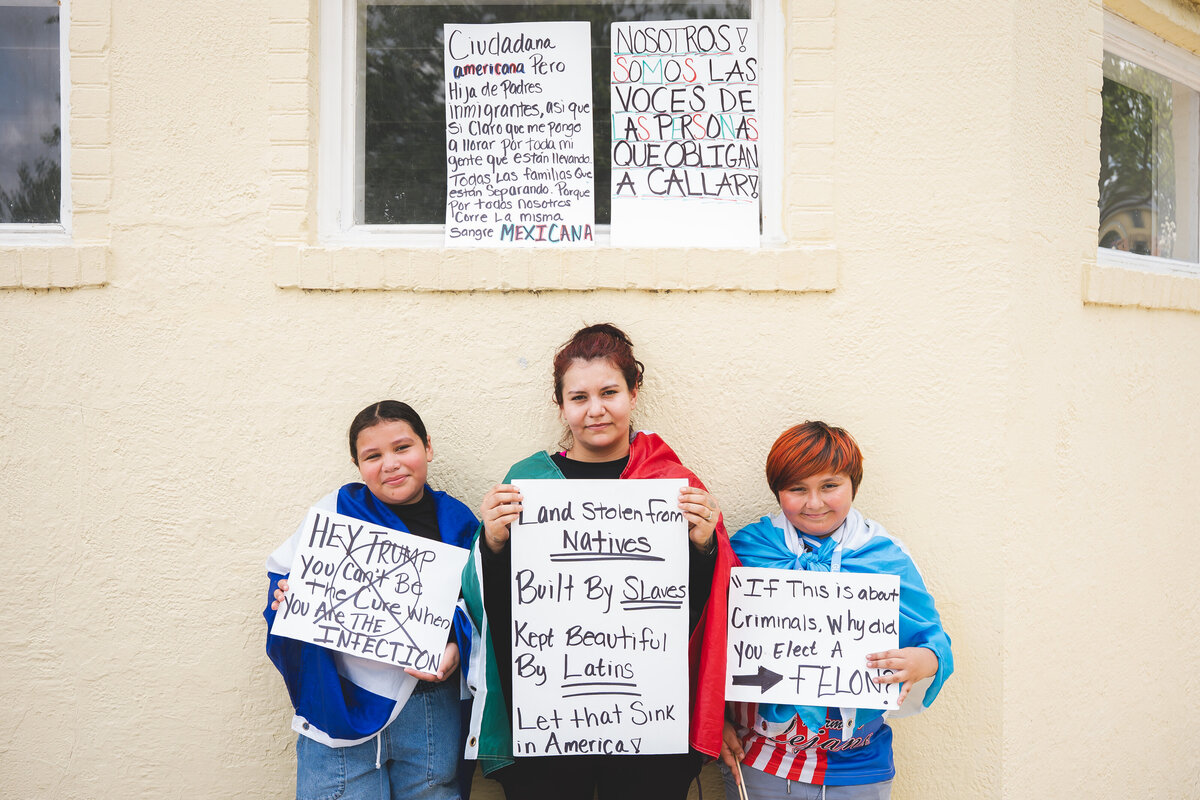 Ciudadana
americana Pero
Hija de Padres
inmigrantes, asi que
Si Claro que me pongo
a llorar por toda mi
gente que están llevando.
Todas Las familias Que
están Separando. Porque
Por todos nosotros
Corre La misma
Sangre MEXICANA
NOSOTROS!
SOMOS LAS
VOCES DE
LAS PERSONAS
QUE OBLIGAN
A CALLAR!
HEY TRUMP
You Can't Be
the Cure When
You Are THE
INFECTION
Land Stolen from
Natives
Built By Slaves
Kept Beautiful
By Latins
Let that Sink
in America!
"If This is about
Criminals, Why did
you Elect A
FELON?